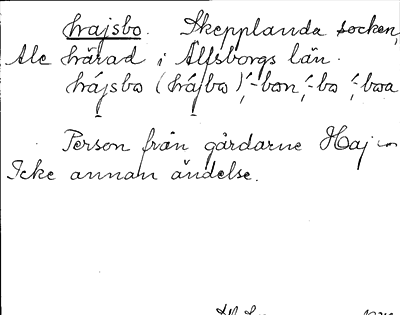 hajsbo. Skepplanda socken,
Ale härad i Älfsborgs län.
hájsbo (hájbo), -bon, -bo, -boa
Person från gårdarne Haj
Icke annan ändelse.